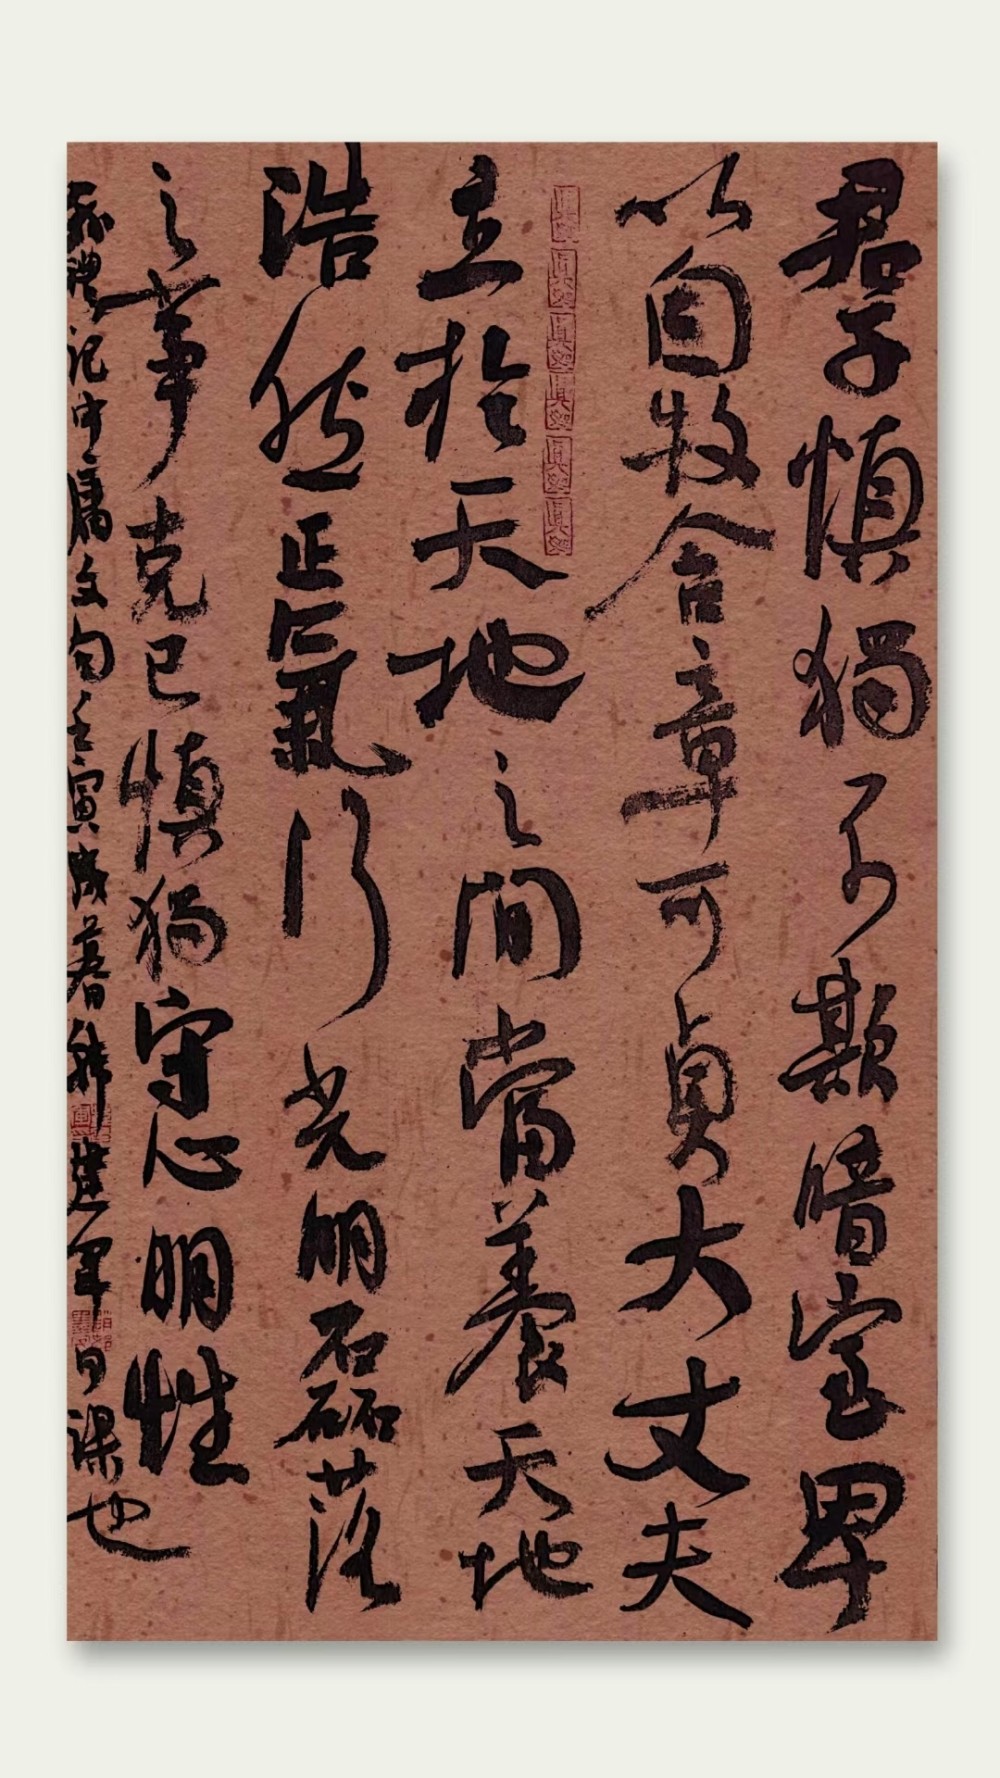 君子慎獨不欺暗室卑
以自牧含章可貞大丈夫
立於天地之間當養天地
浩然正氣行光明磊落
之事克己慎獨守心明性
禮記中庸文句壬寅歲暮
建軍日課也